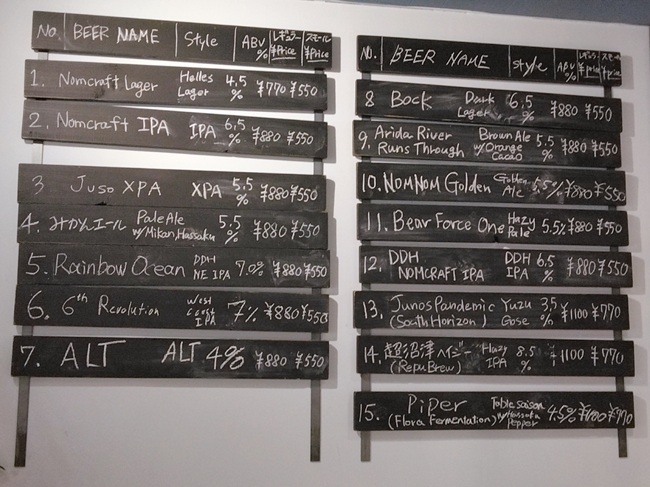 No. BEER NAME Style ABV % レギュラー ¥Price スモール ¥Price
1. Nomcraft Lager Helles Lager 4,5 % ¥770 ¥550
2. Nomcraft IPA IPA 6,5 % ¥880 ¥550
3 Juso XPA XPA 5.5 % ¥880 ¥550
4. みかんエール Pale Ale w/Mikan, Hassaku 5,5 % ¥880 ¥550
5. Rainbow Ocean DDH NE IPA 7.0% ¥880 ¥550
6. 6th Revolution West Coast IPA 7% ¥880 ¥550
7. ALT ALT 4% ¥880 ¥550
NO. BEER NAME style ABV % レギュラー ¥price スモール ¥price
8 Bock Dark Lager 6,5 % ¥880 ¥550
9. Arida River Runs Through Brown Ale w/Orange Cacao 5,5 % ¥880 ¥550
10. NOMNOM Golden Golden Ale 5,5% ¥880 ¥550
11. Bear Force One Hazy Pale 5.5% ¥880 ¥550
12. DDH NOMCRAFT IPA DDH IPA 6.5 % ¥880 ¥550
13. Junos Pandemic (South Horizon) Yuzu Gose 3,5 % ¥1100 ¥770
14. 超沼津ヘイジー (Repu Brew) Hazy IPA 8.5 % ¥1100 ¥770
15. Piper (Flora Fermentation) Table saison w/Hassaku Pepper 4.5% ¥1100 ¥770